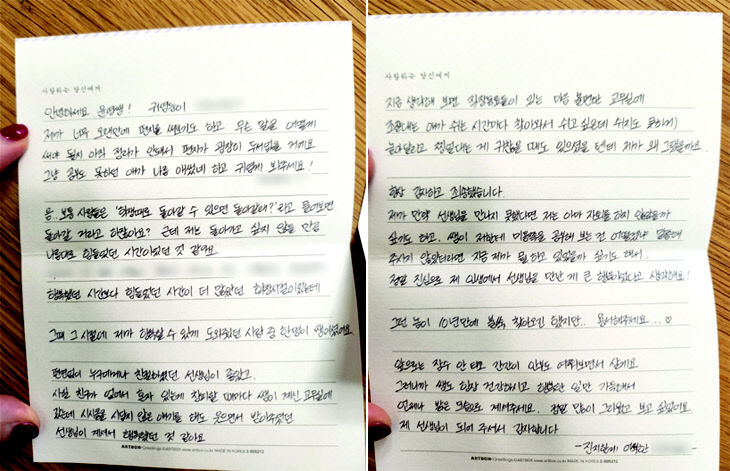 사랑하는 당신에게
안녕하세요 윤연쌤! 귀염둥이
제가 너무 오랜만에 편지를 써보기도 하고 무슨 말을 어떻게
써야 될지 아직 정리가 안돼서 편지가 굉장히 두서없을 거예요
그냥 공부도 못하던 애가 나름 애썼네 하고 귀엽게 봐주세요!
음. 보통 사람들은 '학창시절로 돌아갈 수 있으면 돌아갈래?'라고 물어보면
돌아갈 거라고 하잖아요? 근데 저는 돌아가고 싶지 않을 만큼
나름대로 힘들었던 시간이었던 것 같아요
행복했던 시간보다 힘들었던 시간이 더 많았던 학창시절이었는데
그때 그 시절에 제가 행복할 수 있게 도와줬던 사람 중 한명이 쌤이셨어요
편견없이 누구에게나 친절하셨던 선생님이 좋았고.
사실 친구가 없어서 혼자 있는게 창피할 때마다 쌤이 계신 교무실에
갔는데 시시콜콜 시답지 않은 얘기를 해도 웃으면서 받아주셨던
선생님이 계셔서 행복했던 것 같아요
ARTBOX Greetings ©ARTBOX www.artbox.co.kr MADE IN KOREA
사랑하는 당신에게
지금 생각해 보면 직장동료들이 있는 마음 불편한 교무실에
조그만한 애가 쉬는 시간마다 찾아와서 쉬고 싶은데 쉬지도 못하게
놀아달라고 찡얼대는 게 귀찮을 때도 있으셨을 텐데 제가 왜 그랬을까요.
항상 감사하고 죄송했습니다
제가 만약 선생님을 만나지 못했다면 저는 아마 자퇴를 하지 않았을까
싶기도 하고. 쌤이 저한테 미용쪽을 공부해 보는 건 어떻겠냐 말씀해
주시지 않았더라면 지금 제가 뭘 하고 있었을까 싶기도 해서.
정말 진심으로 제 인생에서 선생님을 만난 게 큰 행운이었다고 생각해요!
그런 놈이 10년만에 불쑥 찾아오긴 했지만.. 용서해주세요...♡
앞으로는 잠수 안 타고 간간이 안부도 여쭤보면서 살게요
그러니까 쌤도 항상 건강하시고 행복한 일만 가득해서
언제나 밝은 모습으로 계셔주세요. 정말 많이 그리웠고 보고 싶었어요
제 선생님이 되어 주셔서 감사합니다